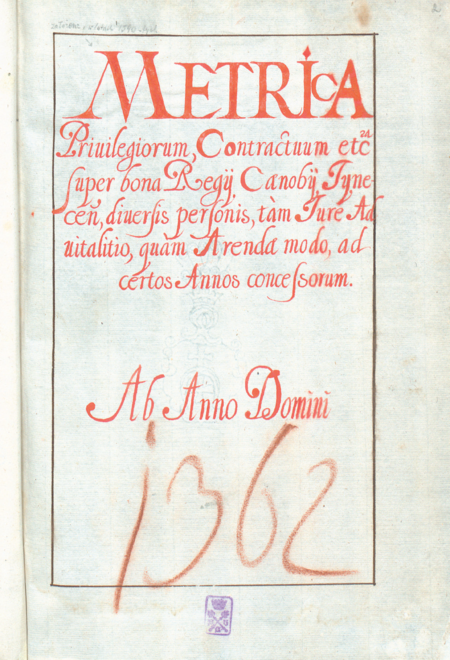 METRIcA
Priuilegiorum, Contractuum etc
super bona Regÿ Cænobÿ Tyne-
ceñ, diuersis personis, tàm Iure Ad
uitalitio, quàm Arendæ modo, ad
certos Annos concessorum.
Ab Anno Domini
1362